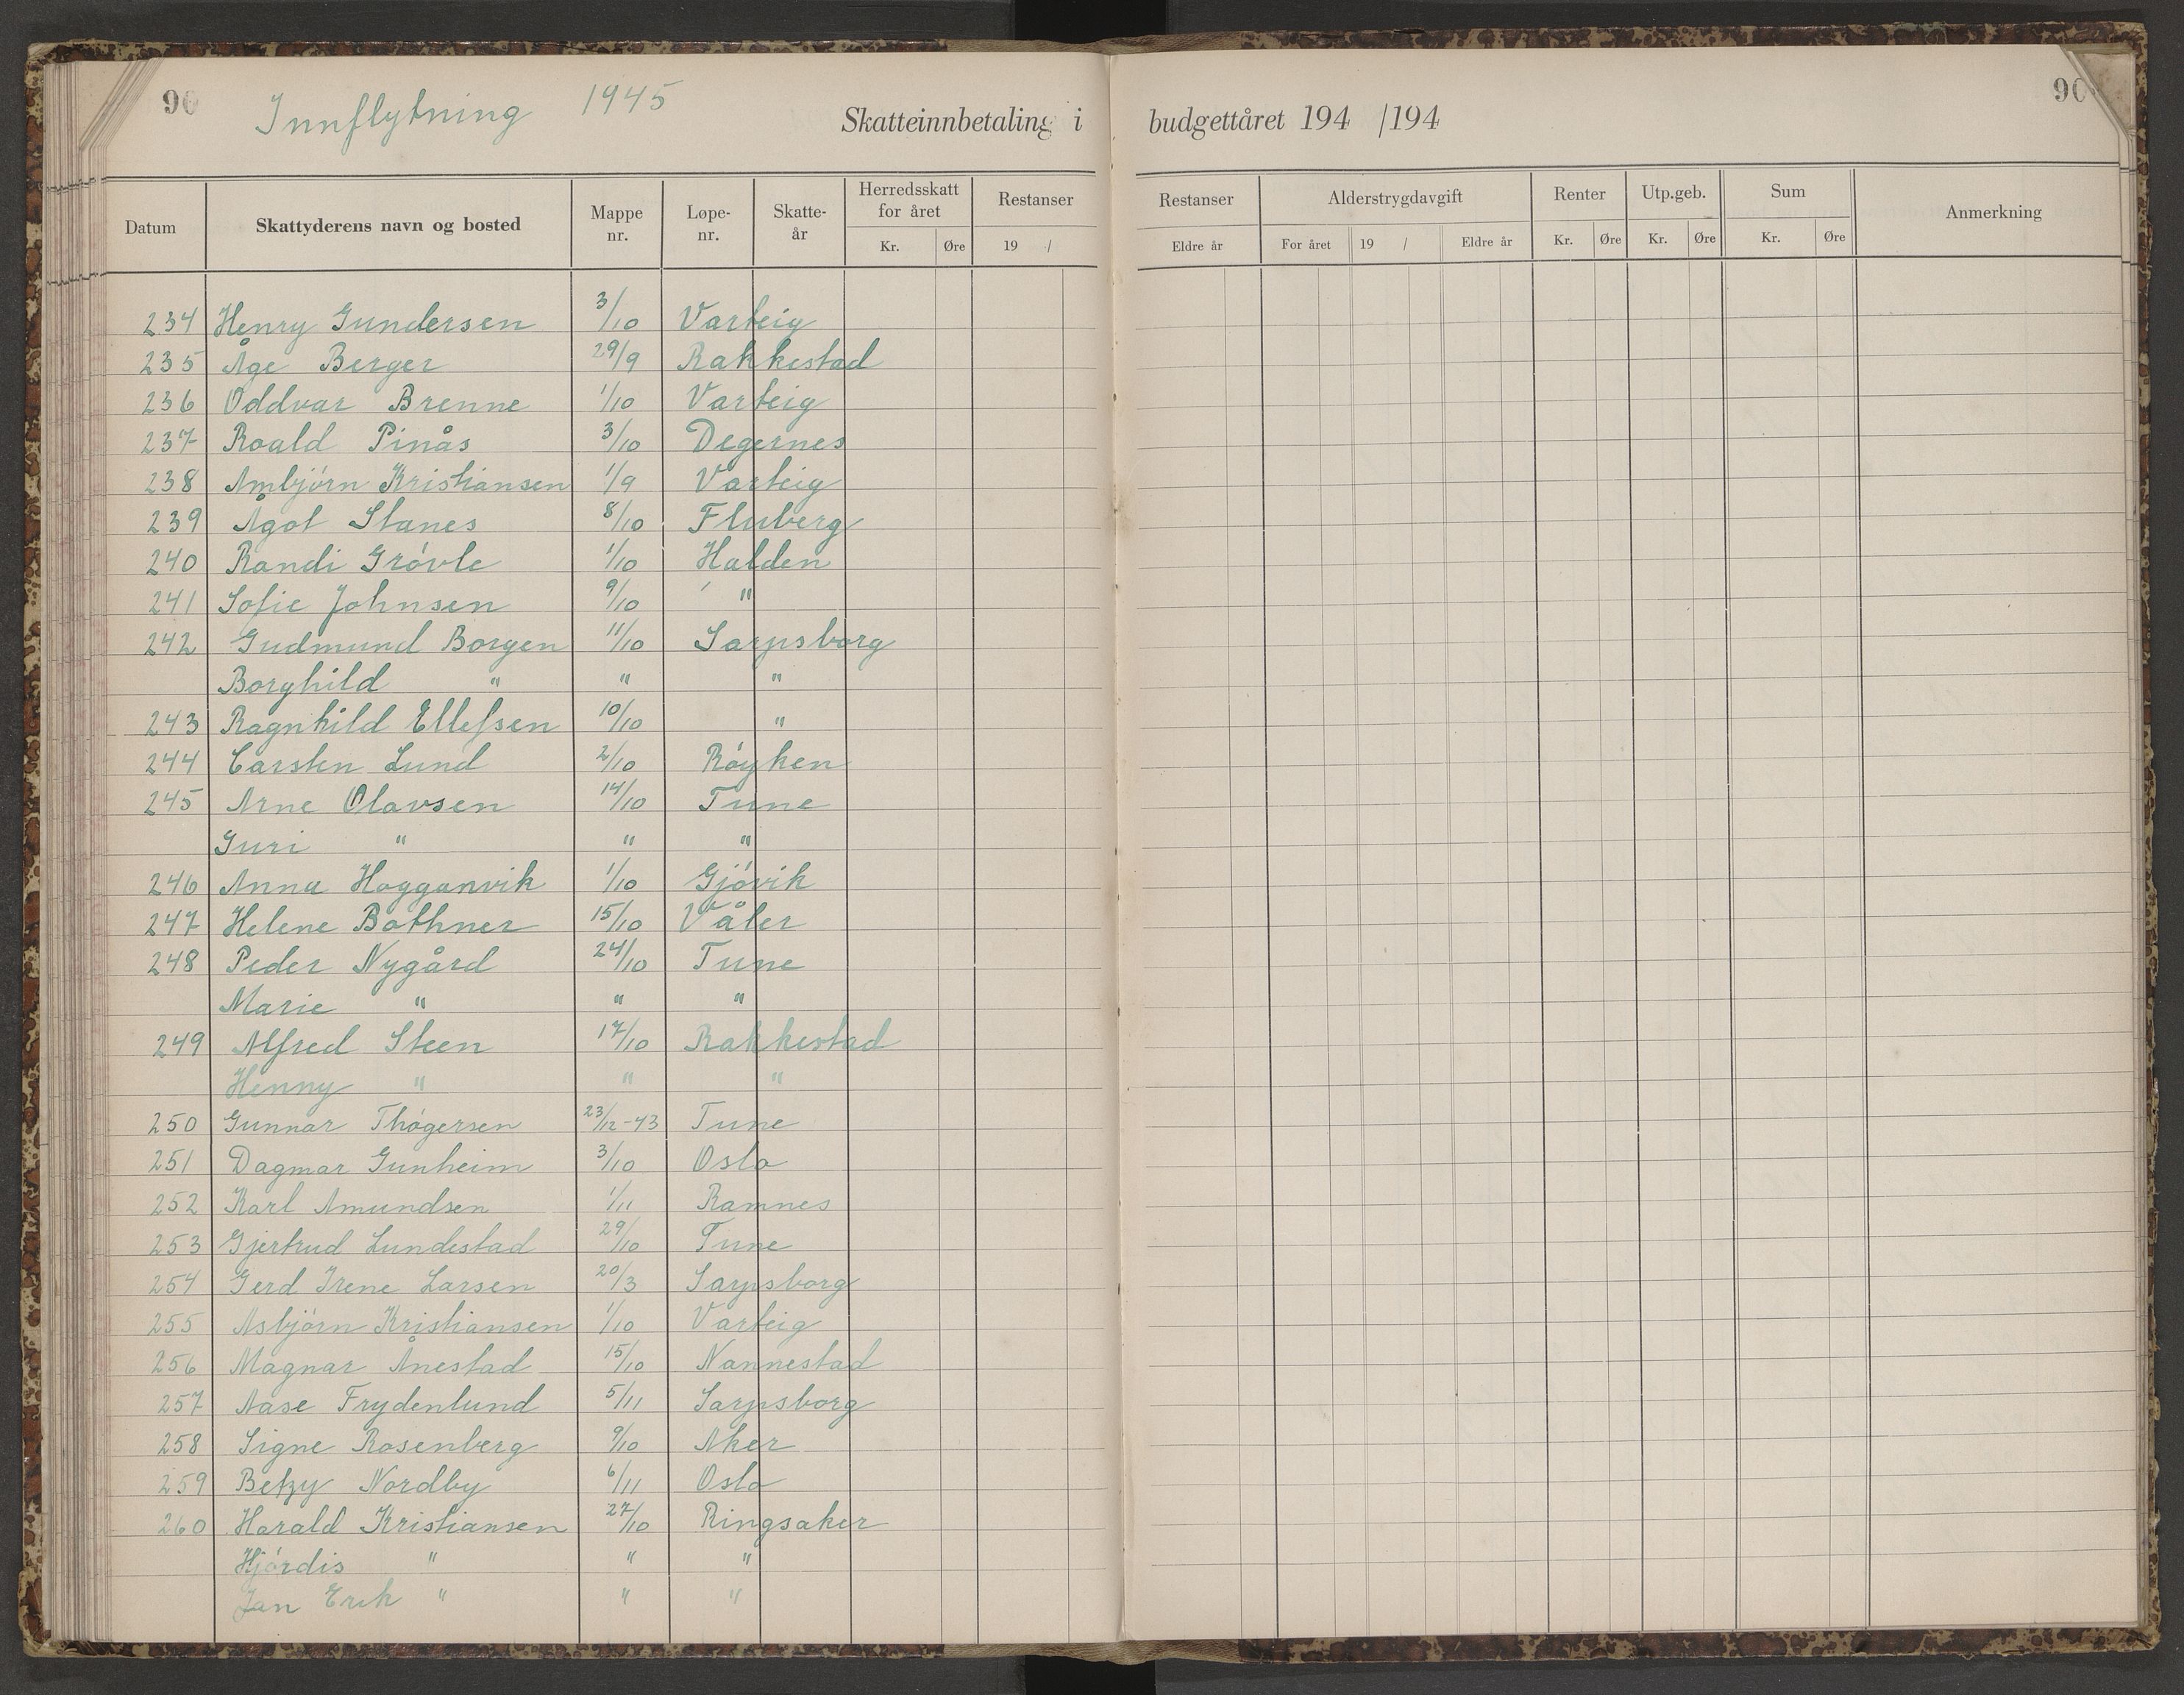 90 Innflytning 1945 Skatteinnbetaling i budgettåret 194 /194 90
Datum Skattyderens navn og bosted Mappe nr. Løpe- nr. Skatte- år Herredsskatt for året Kr. Øre Restanser 19 / Restanser Eldre år Alderstrygdavgift For året 19 / Eldre år Renter Kr. Øre Utp.geb. Kr. Øre Sum Kr. Øre Anmerkning
234 Henry Gundersen 3/10 Varteig
235 Åge Berger 29/9 Rakkestad
236 Oddvar Brenne 1/10 Varteig
237 Roald Pinås 3/10 Degernes
238 Ambjørn Kristiansen 1/9 Varteig
239 Ågot Stanes 8/10 Fluberg
240 Randi Grøvle 1/10 Halden
241 Sofie Johnsen 9/10 "
242 Gudmund Borgen 11/10 Sarpsborg
Borghild " " "
243 Ragnhild Ellefsen 10/10 "
244 Carsten Lund 2/10 Røyken
245 Arne Olavsen 14/10 Tune
Guri " " "
246 Anna Hogganvik 1/10 Gjøvik
247 Helene Bothner 15/10 Våler
248 Peder Nygård 24/10 Tune
Marie " " "
249 Alfred Steen 17/10 Rakkestad
Henny " " "
250 Gunnar Thøgersen 23/12-43 Tune
251 Dagmar Gunheim 3/10 Oslo
252 Karl Amundsen 1/11 Ramnes
253 Gjertrud Lundestad 29/10 Tune
254 Gerd Irene Larsen 20/3 Sarpsborg
255 Asbjørn Kristiansen 1/10 Varteig
256 Magnar Ånestad 15/10 Nannestad
257 Aase Frydenlund 5/11 Sarpsborg
258 Signe Rosenberg 9/10 Aker
259 Betzy Nordby 6/11 Oslo
260 Harald Kristiansen 27/10 Ringsaker
Hjørdis " " "
Jan Erik " " "